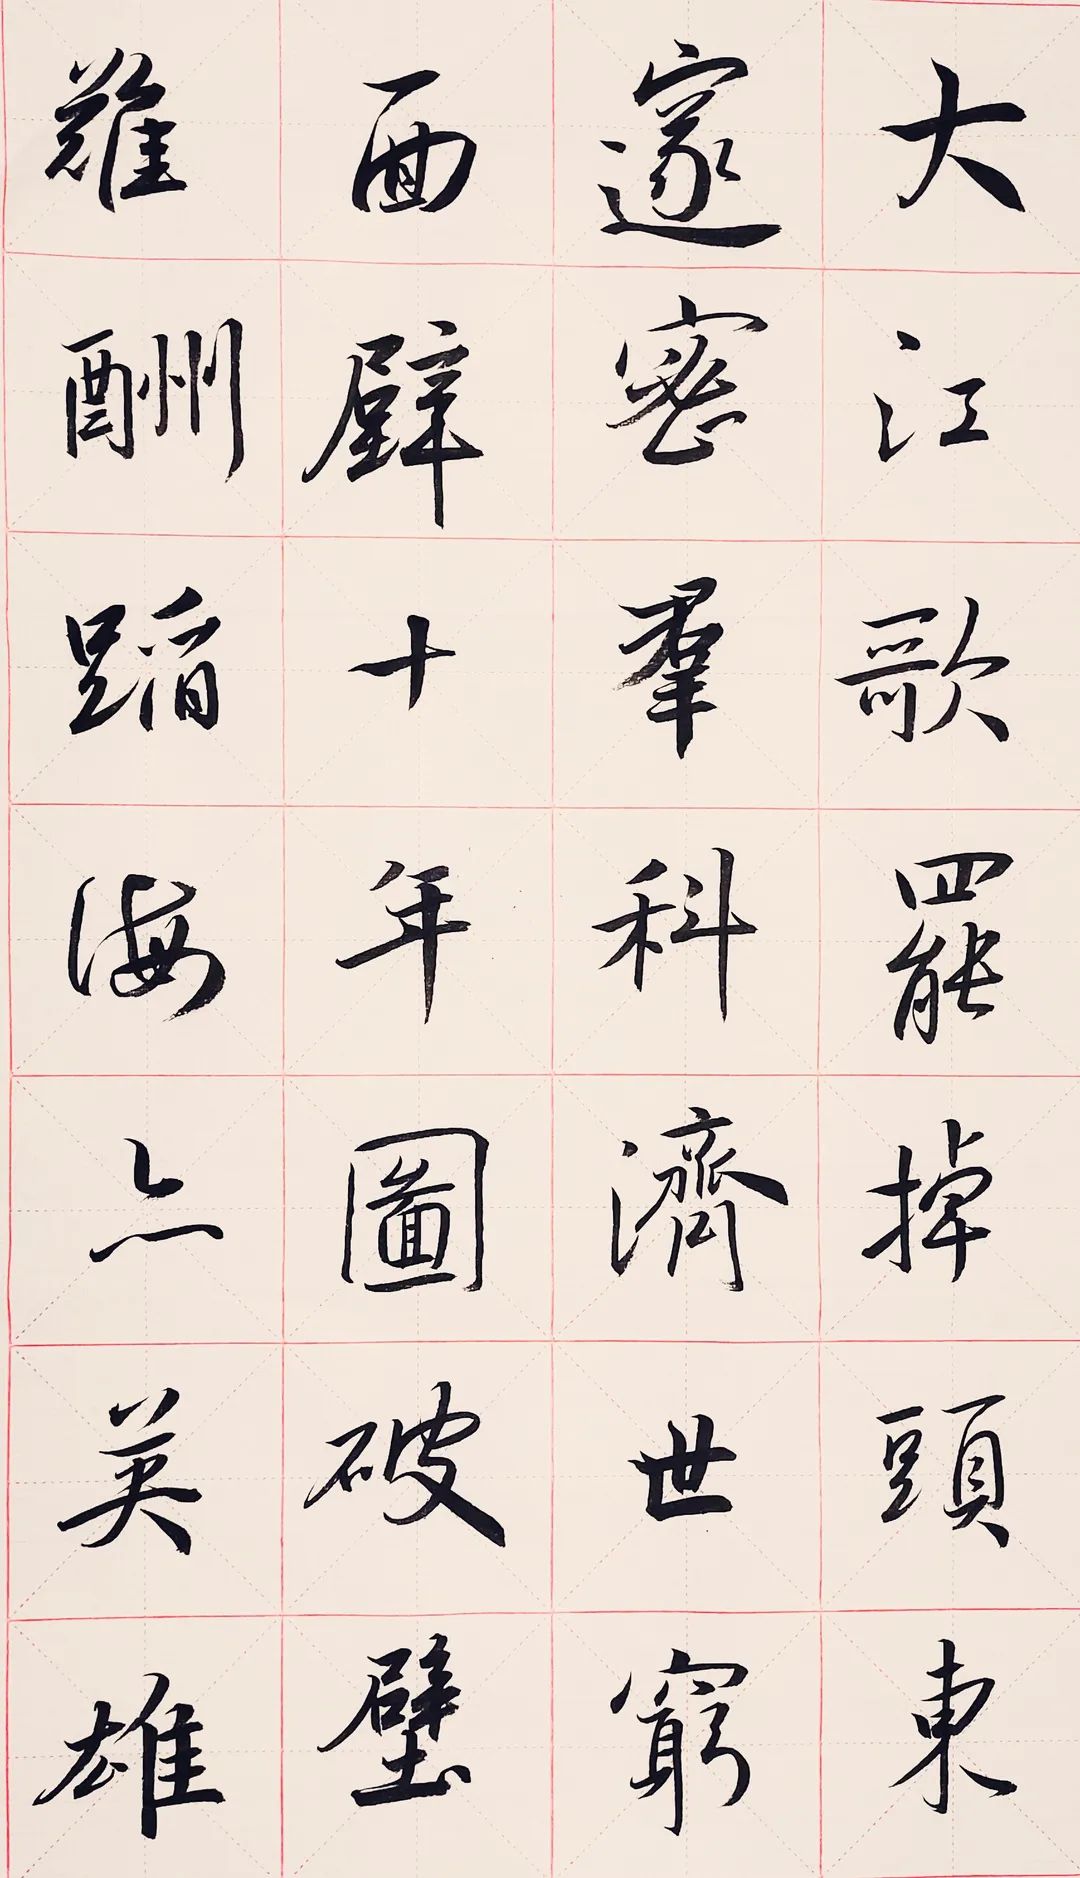 大江歌罷掉頭東
邃密羣科濟世窮
面壁十年圖破壁
難酬蹈海亦英雄